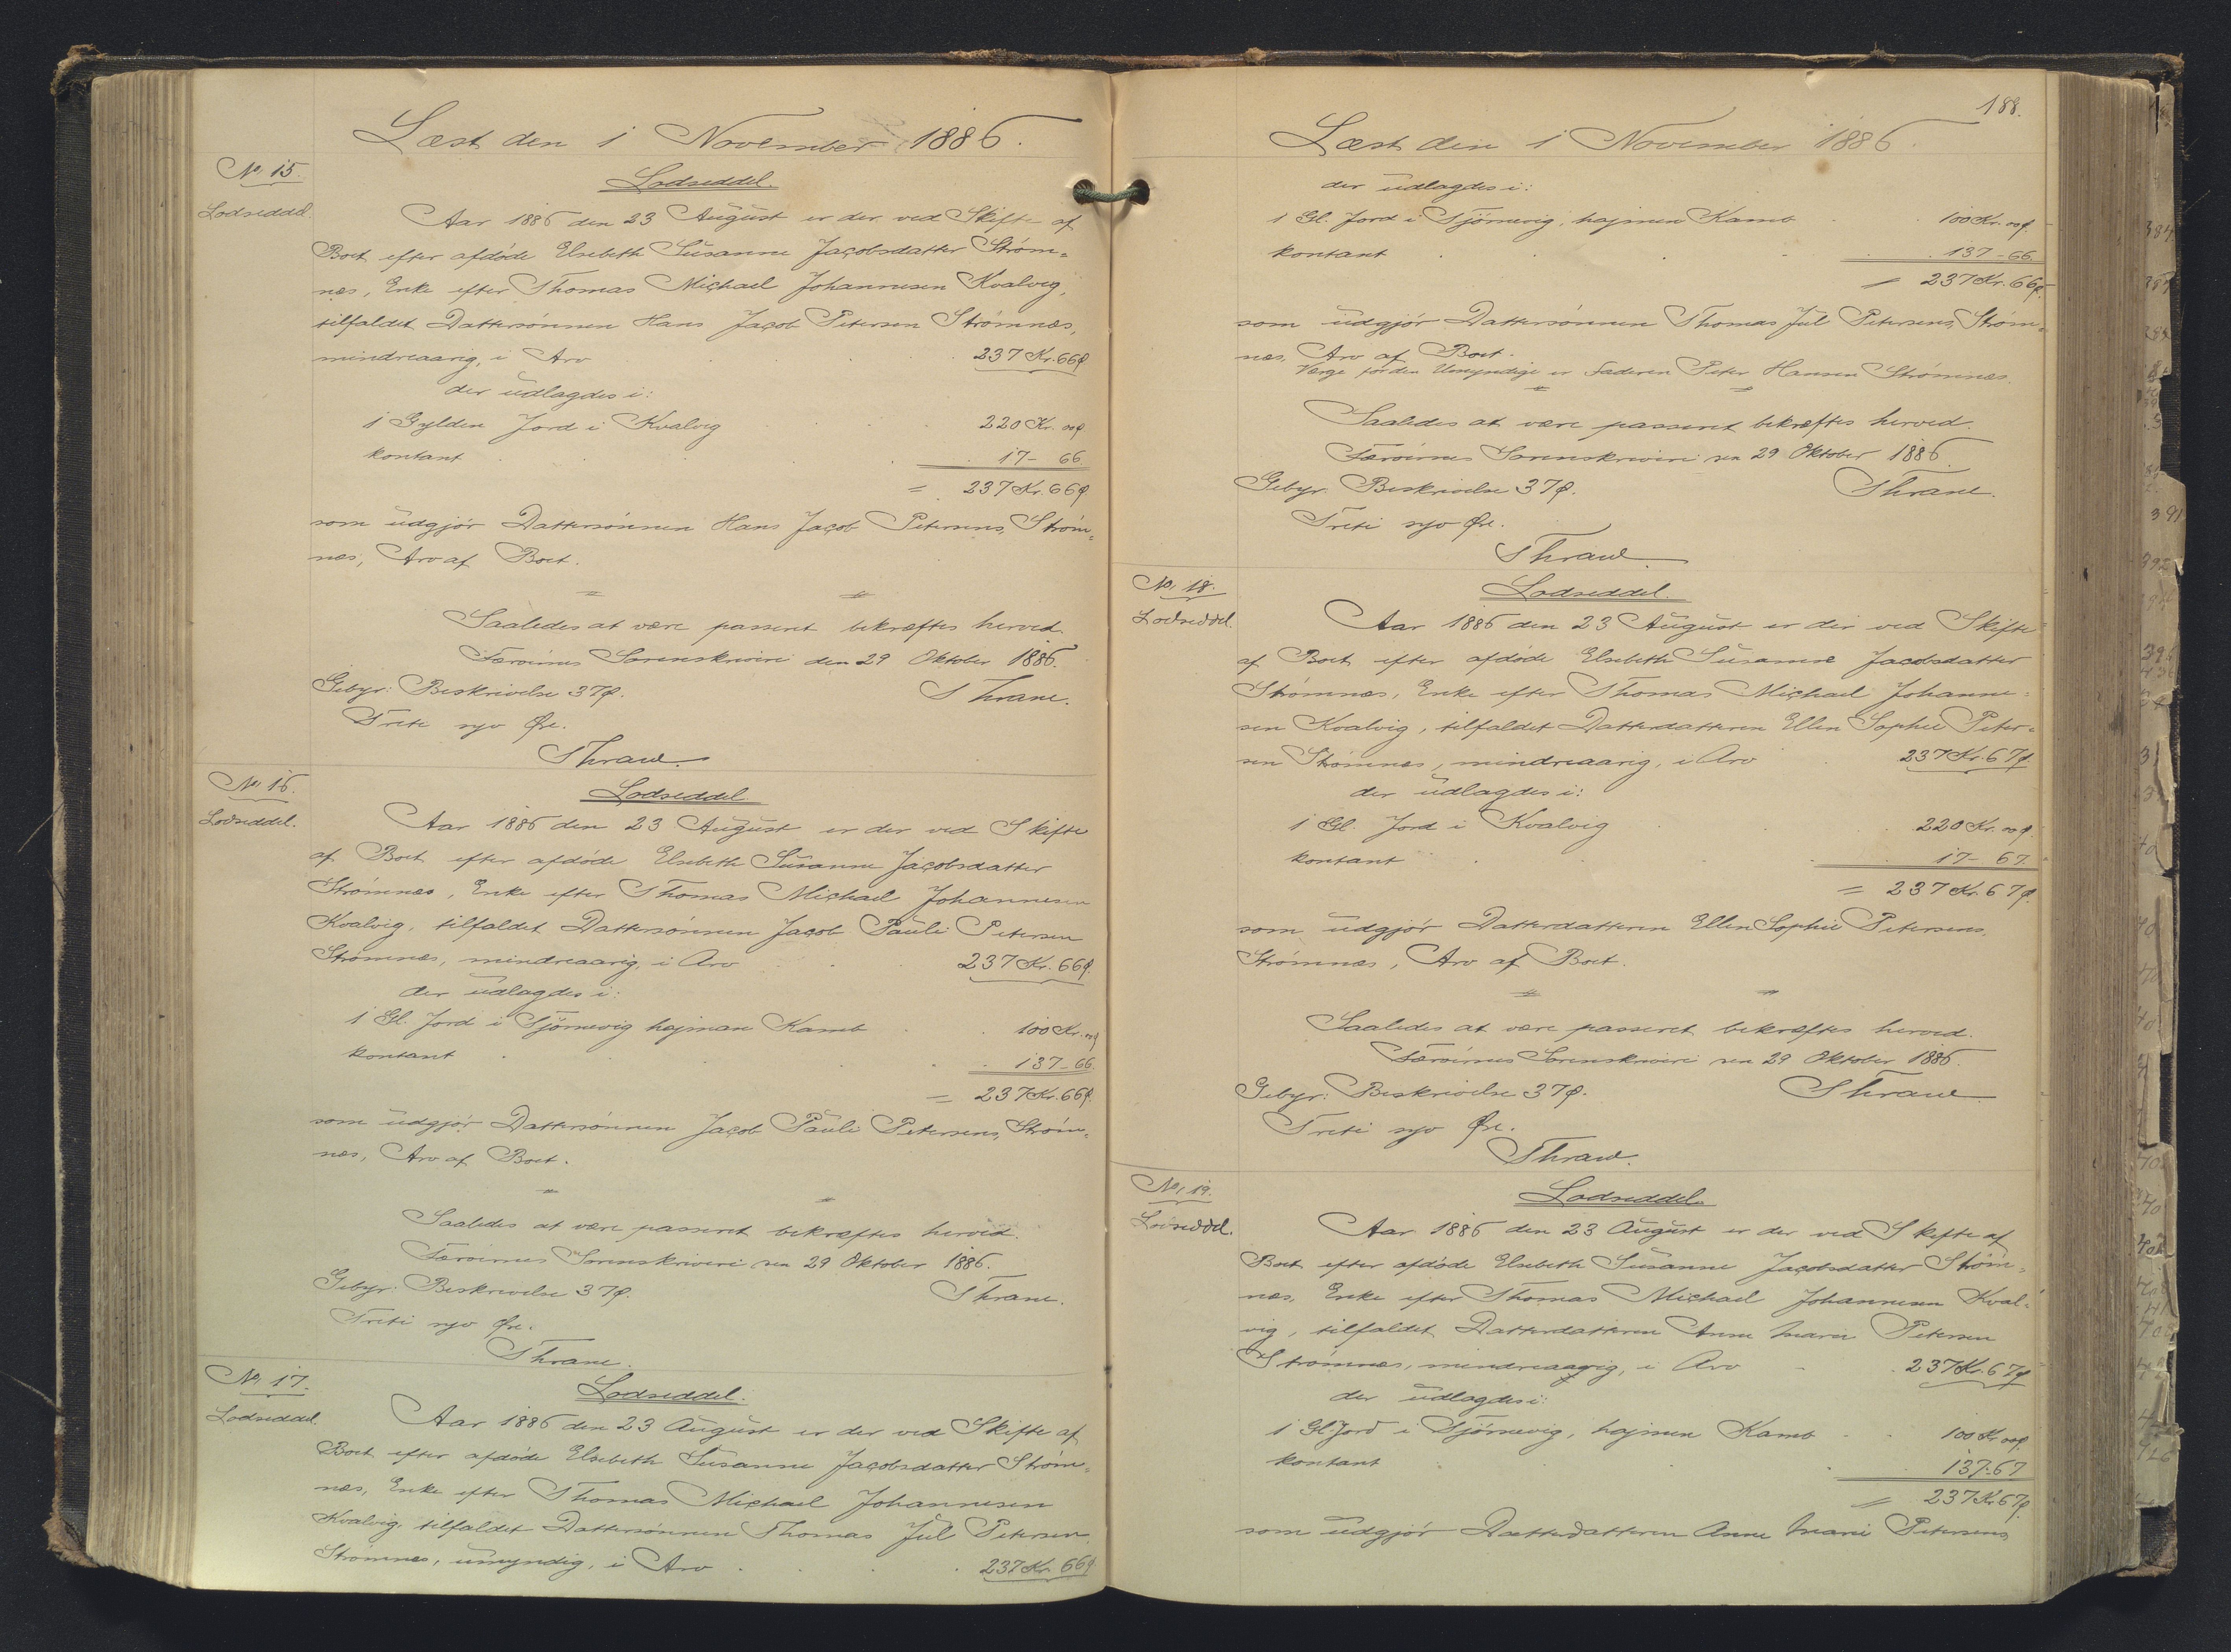 Læst den 1 November 1886.
No. 15.
Lodseddel.
Lodseddel.
Aar 1886 den 23 August er der ved Skifte af
Boet efter afdøde Elsebeth Susanne Jacobsdatter Strøm=
næs, Enke efter Thomas Michael Johannesen Kvalvig,
tilfaldet Dattersønnen Hans Jacob Petersen Strømnæs,
mindreaarig, i Arv . . . 237 Kr. 66 ø.
der udlagdes i:
1 Gylden Jord i Kvalvig . . 220 Kr. 00 ø.
kontant . . . . 17 - 66.
= 237 Kr. 66 ø
som udgjør Dattersønnen Hans Jacob Petersens, Strøm=
næs, Arv af Boet.
Saaledes at være passeret bekræftes herved.
Færøernes Sorenskriveri den 29 Oktober 1886.
Gebyr: Beskrivelse 37 ø. Thrane.
Treti syv Øre.
Thrane.
No. 16.
Lodseddel.
Lodseddel.
Aar 1886 den 23 August er der ved Skifte
af Boet efter afdøde Elsebeth Susanne Jacobsdatter
Strømnæs, Enke efter Thomas Michael Johannesen
Kvalvig, tilfaldet Dattersønnen Jacob Pauli Petersen
Strømnæs, mindreaarig, i Arv . . . 237 Kr. 66 ø.
der udlagdes i:
1 Gl. Jord i Tjørnevig hajman Kamb . . 100 Kr. 00 ø
kontant . . . . 137 - 66.
= 237 Kr. 66 ø.
som udgjør Dattersønnen Jacob Pauli Petersens, Strøm=
næs, Arv af Boet.
Saaledes at være passeret bekræftes herved.
Færøernes Sorenskriveri den 29 Oktober 1886.
Gebyr: Beskrivelse 37 ø. Thrane.
Treti syv Øre.
Thrane.
No. 17.
Lodseddel.
Lodseddel.
Aar 1886 den 23 August er der ved Skifte af
Boet efter afdøde Elsebeth Susanne Jacobsdatter Strøm=
næs, Enke efter Thomas Michael Johannesen
Kvalvig, tilfaldet Dattersønnen Thomas Jul Petersen,
Strømnæs, umyndig, i Arv . . . 237 Kr. 66 ø.
188.
Læst den 1 November 1886.
der udlagdes i:
1 Gl. Jord i Tjørnevig, hajman Kamb . . 100 Kr. 00 ø.
kontant . . . . 137 - 66
= 237 Kr. 66 ø.
som udgjør Dattersønnen Thomas Jul Petersens, Strøm=
næs, Arv af Boet.
Værge for den Umyndige er Faderen Peter Hansen Strømnæs.
Saaledes at være passeret bekræftes herved.
Færøernes Sorenskriveri den 29 Oktober 1886.
Gebyr. Beskrivelse 37 ø. Thrane.
Treti syv Øre.
Thrane.
No. 18.
Lodseddel.
Lodseddel.
Aar 1886 den 23 August er der ved Skifte
af Boet efter afdøde Elsebeth Susanne Jacobsdatter
Strømnæs, Enke efter Thomas Michael Johanne=
sen Kvalvig, tilfaldet Datterdatteren Ellen Sophie Peter=
sen Strømnæs, mindreaarig, i Arv . 237 Kr. 67 ø.
der udlagdes i:
1 Gl. Jord i Kvalvig . . 220 Kr. 00 ø.
kontant . . . 17 - 67.
= 237 Kr. 67 ø.
som udgjør Datterdatteren Ellen Sophie Petersens,
Strømnæs, Arv af Boet.
Saaledes at være passeret bekræftes herved.
Færøernes Sorenskriveri den 29 Oktober 1886.
Gebyr: Beskrivelse 37 ø. Thrane
Treti syv Øre.
Thrane.
No. 19.
Lodseddel.
Lodseddel.
Aar 1886 den 23 August er der ved Skifte af
Boet efter afdøde Elsebeth Susanne Jacobsdatter Strøm=
næs, Enke efter Thomas Michael Johannesen Kval=
vig, tilfaldet Datterdatteren Anne Marie Petersen
Strømnæs, mindreaarig, i Arv . . 237 Kr. 67 ø
der udlagdes i:
1 Gl Jord i Tjørnevig, hajman Kamb . . 100 Kr 00 ø.
kontant . . . 137 - 67
= 237 Kr 67 ø.
som udgjør Datterdatteren Anne Marie Petersens,